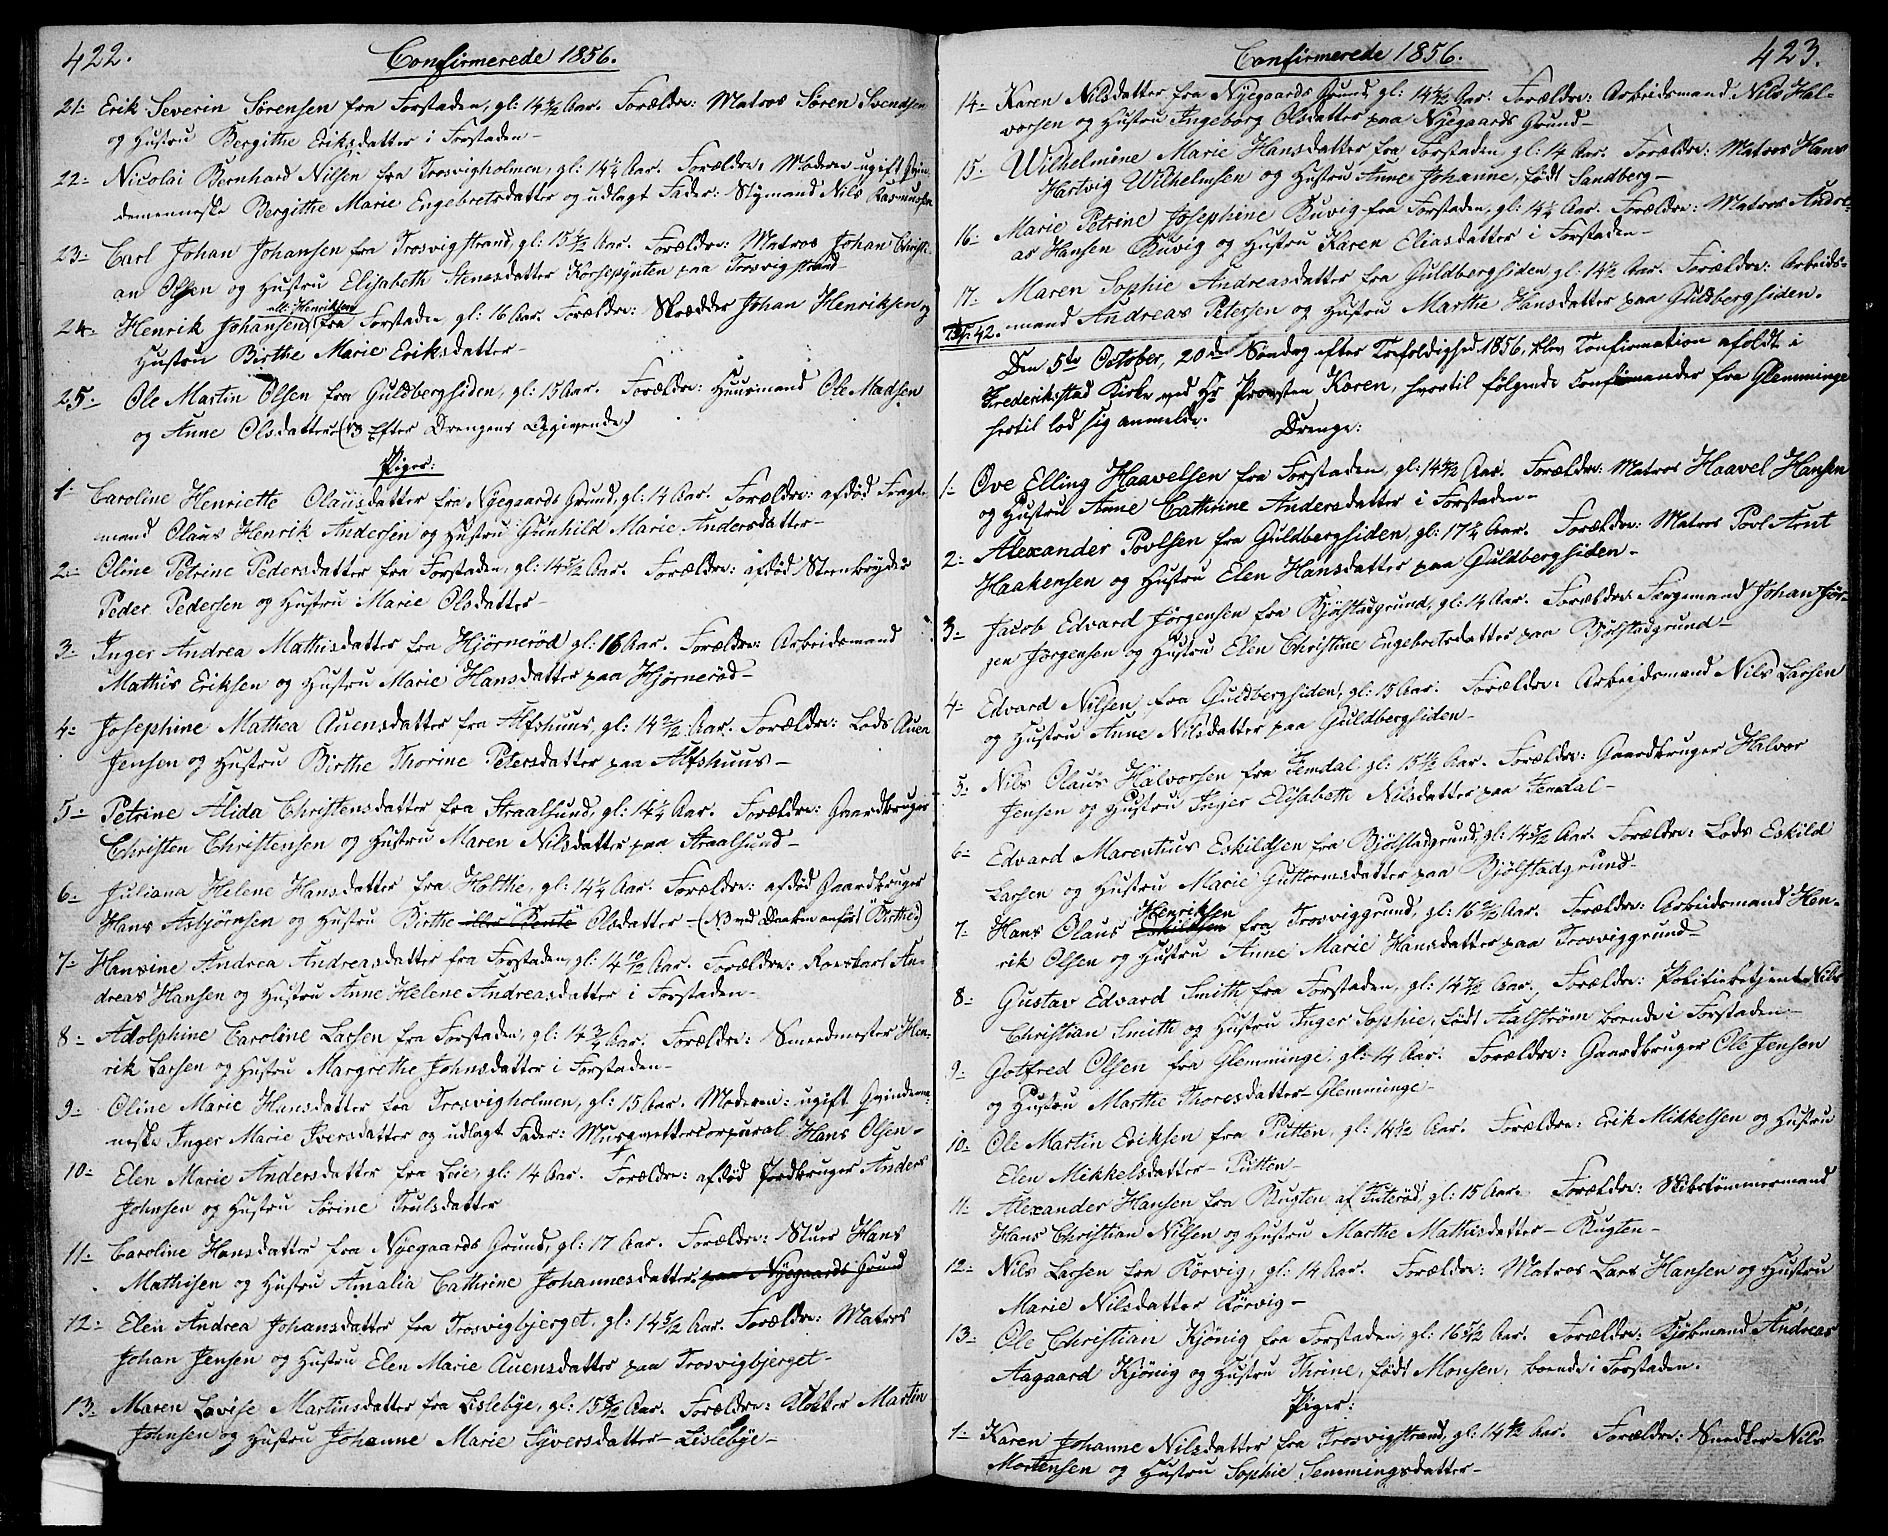 422.
Confirmerede 1856.
21- Erik Severin Sørensen fra Forstaden, gl: Aar. Forældre: Matros Søren Svendsen
og Hustru Bergithe Eriksdatter i Forstaden-
22- Nicolai Bernhard Nilsen fra Trosvigholmen, gl: 14¼ Aar. Forældre: Moderen ugift Qvin-
demenneske Bergithe Marie Engebretsdatter og udlagt Fader: Styrmand Nils Rasmussen
23- Carl Johan Johansen fra Trosvigstrand, gl: Aar. Forældre: Matros Johan Christi-
an Olsen og Hustru Elisabeth Stenesdatter Korsepynten paa Trosvigstrand-
ell: Henriksen
24- Henrik Johansen, fra Forstaden gl: 16 Aar. Forældre: Skrædder Johan Henriksen og
Hustru Birthe Marie Eriksdatter-
25- Ole Martin Olsen fra Guldbergsiden, gl: 15 Aar. Forældre: Huusmand Ole Madsen
og Anne Olsdatter (NB Efter Drengens Opgivende)
Piger:
1- Caroline Henriette Olausdatter fra Nyegaards Grund, gl: 14 Aar. Forældre: afdød Fragt-
mand Olaus Henrik Andersen og Hustru Gunhild Marie Andersdatter-
2- Oline Petrine Pedersdatter fra Forstaden, gl: 14 5/12 Aar. Forældre: afdød Steenbryder
Peder Pedersen og Hustru Marie Olsdatter-
3- Inger Andrea Mathisdatter fra Hjørnerød gl: 16 Aar. Forældre: Arbeidsmand
Mathis Eriksen og Hustru Marie Hansdatter paa Hjørnerød-
4- Josephine Mathea Auensdatter fra Alfshuus, gl: 14 2/12 Aar. Forældre: Lods Auen
Jensen og Hustru Birthe Thorine Petersdatter paa Alfshuus-
5- Petrine Alida Christensdatter fra Straalsund, gl: 14¼ Aar. Forældre: Gaardbruger
Christen Christensen og Hustru Maren Nilsdatter paa Straalsund-
6- Juliana Helene Hansdatter fra Holthe, gl: 14¼ Aar. Forældre: afdød Gaardbruger
Hans Asbjørnsen og Hustru Birthe eller "Bente" Olsdatter- (NB ved Daaben anført "Birthe")
7- Hansine Andrea Andreasdatter fra Forstaden, gl: 14 10/12 Aar. Forældre: Roerskarl An-
dreas Hansen og Hustru Anne Helene Andreasdatter i Forstaden-
8- Adolphine Caroline Larsen fra Forstaden, gl: 14¾ Aar. Forældre: Smedmester Hen-
rik Larsen og Hustru Margrethe Johnsdatter i Forstaden-
9- Oline Marie Hansdatter fra Trosvigholmen, gl: 15 Aar. Moderen: ugift Qvindemen-
neske Inger Marie Iversdatter og udlagt Fader: Hans Olsen-
10- Elen Marie Andersdatter fra Leie, gl: 14 Aar. Forældre: afdød Jordbruger Anders
Johnsen og Hustru Sørine Trulsdatter
11- Caroline Hansdatter fra Nyegaards Grund, gl: 17 Aar. Forældre: Stuer Hans
Mathisen og Hustru Amalia Cathrine Johannesdatter. paa Nyegaards Grund
12- Elen Andrea Johansdatter fra Trosvigbjerget, gl: 14 5/12 Aar. Forældre: Matros
Johan Jensen og Hustru Elen Marie Auensdatter paa Trosvigbjerget-
13- Maren Lovise Martinsdatter fra Lislebye, gl: Aar. Forældre: Klokker Martin
Johnsen og Hustru Johanne Marie Syversdatter- Lislebye-
Confirmerede 1856.
423.
14- Karen Nilsdatter fra Nyegaards Grund, gl: Aar. Forældre: Arbeidsmand Nils Hal-
vorsen og Hustru Ingeborg Olsdatter paa Nyegaards Grund-
15- Wilhelmine Marie Hansdatter fra Forstaden, gl: 14 Aar. Forældre: Matros Hans
Hartvig Wilhelmsen og Hustru Anne Johanne, født Sandberg-
16- Marie Petrine Josephine Buvig fra Forstaden, gl: 14¼ Aar. Forældre: Matros Andre-
as Hansen Buvig og Hustru Karen Eliasdatter i Forstaden-
17- Maren Sophie Andreasdatter fra Guldbergsiden gl: 14½ Aar. Forældre: Arbeids-
mand Andreas Petersen og Hustru Marthe Hansdatter paa Guldbergsiden.
42.
Den 5te October, 20de Søndag efter Trefoldighed 1856, blev Confirmation afholdt i
Frederikstad Kirke ved Hr Provsten Koren, hvortil følgende Confirmander fra Glemminge
hertil lod sig anmelde.
Drenge:
1- Ove Elling Haavelsen fra Forstaden, gl: Aar. Forældre: Matros Haavel Hansen
og Hustru Anne Cathrine Andersdatter i Forstaden-
2- Alexander Povlsen fra Guldbergsiden, gl: 17¼ Aar. Forældre: Matros Povl Arnt
Haakensen og Hustru Elen Hansdatter paa Guldbergsiden-
3- Jacob Edvard Jørgensen fra Bjølstadgrund, gl: 14 Aar. Forældre: Færgemand Johan Jør-
gen Jørgensen og Hustru Elen Christine Engebretsdatter paa Bjølstadgrund-
4- Edvard Nilsen fra Guldbergsiden, gl: 15 Aar. Forældre: Arbeidsmand Nils Larsen
og Hustru Anne Nilsdatter paa Guldbergsiden-
5- Nils Olaus Halvorsen fra Femdal, gl: Aar. Forældre: Gaardbruger Halvor
Jensen og Hustru Inger Elisabeth Nilsdatter paa Femdal-
6- Edvard Marentius Eskildsen fra Bjølstadgrund, gl: 14 5/12 Aar. Forældre: Lods Eskild
Larsen og Hustru Marie Guttormsdatter paa Bjølstadgrund-
Henriksen
7- Hans Olaus Eskildsen fra Trosviggrund, gl: 16 2/12 Aar. Forældre: Arbeidsmand Hen-
rik Olsen og Hustru Anne Marie Hansdatter paa Trosviggrund-
8- Gustav Edvard Smith fra Forstaden, gl: 14 7/12 Aar. Forældre: Politiebetjent Nils
Christian Smith og Hustru Inger Sophie, født Aalstrøm boende i Forstaden-
9- Gotfred Olsen fra Glemminge, gl: 14 Aar. Forældre: Gaardbruger Ole Jensen
og Hustru Marthe Thoresdatter- Glemminge-
10- Ole Martin Eriksen fra Putten, gl: 14½ Aar. Forældre: Erik Mikkelsen og Hustru
Elen Mikkelsdatter- Putten-
11- Alexander Hansen fra Rugten af Futerød, gl: 15 Aar. Forældre: Skibstømmermand
Hans Christian Nilsen og Hustru Marthe Mathisdatter- Rugten-
12- Nils Larsen fra Rørvig, gl: 14 Aar. Forældre: Matros Lars Hansen og Hustru
Marie Nilsdatter Rørvig-
13- Ole Christian Kjønig fra Forstaden, gl: 16 5/12 Aar. Forældre: Kjøbmand Andreas
Aagaard Kjønig og Hustru Thrine, født Monsen, boende i Forstaden.
Piger:
1- Karen Johanne Nilsdatter fra Trosvigstrand, gl: Aar. Forældre: Snedker Nils
Mortensen og Hustru Sophie Semmingsdatter-